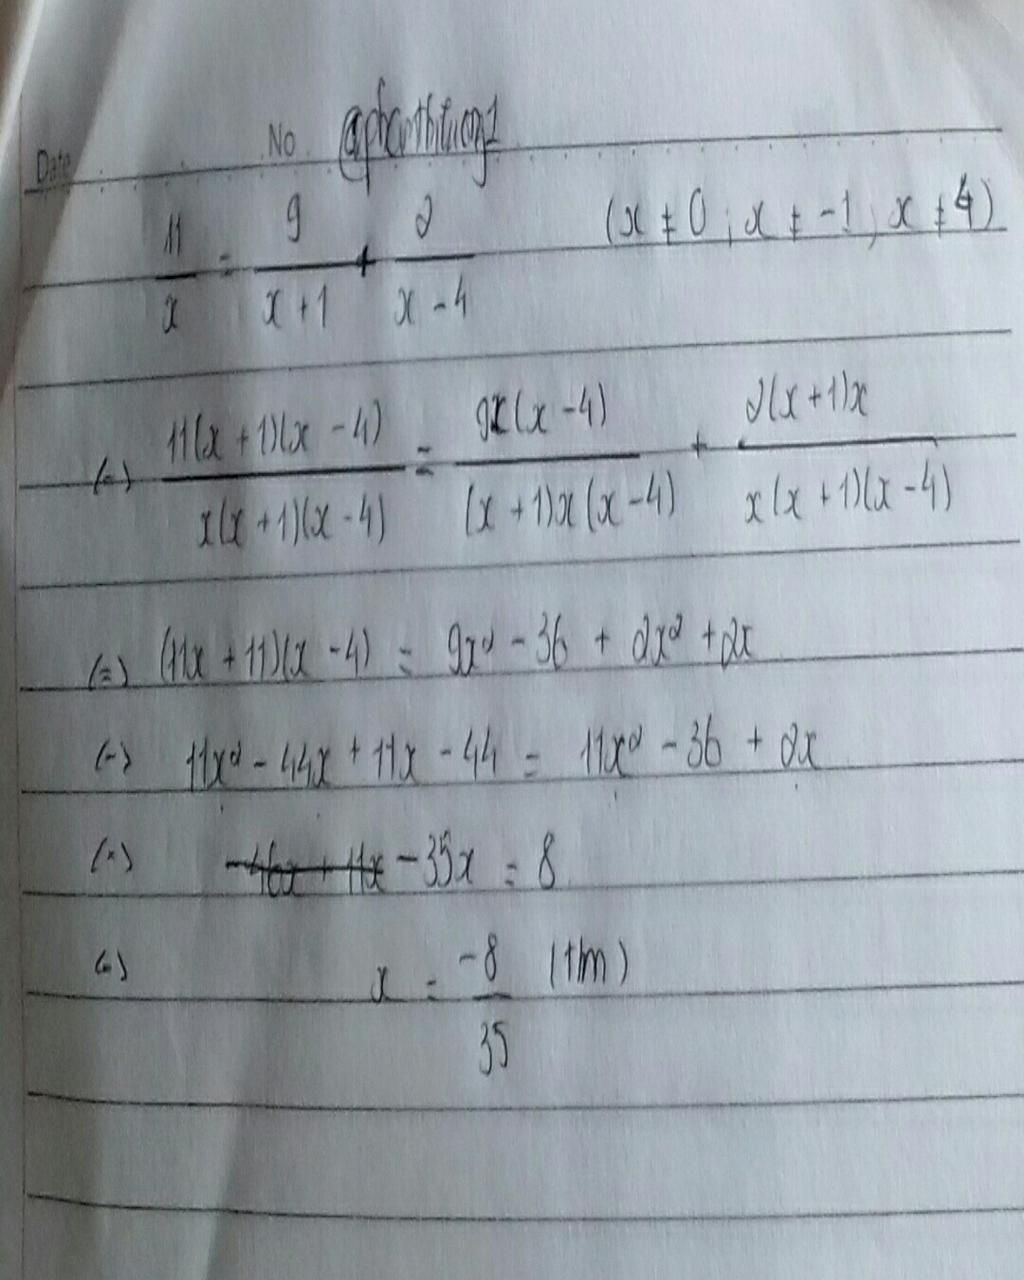 Date No @phanthituong1
11/x = 9/(x+1) + 2/(x-4) (x ≠ 0 ; x ≠ -1, x ≠ 4)
(=) 11(x+1)(x-4)/x(x+1)(x-4) = 9x(x-4)/(x+1)x(x-4) + 2(x+1)x/x(x+1)(x-4)
(=) (11x+11)(x-4) = 9x² - 36 + 2x² + 2x
(=) 11x² - 44x + 11x - 44 = 11x² - 36 + 2x
(=) -46x + 11x -35x = 8
(=) x = -8/35 (t/m)